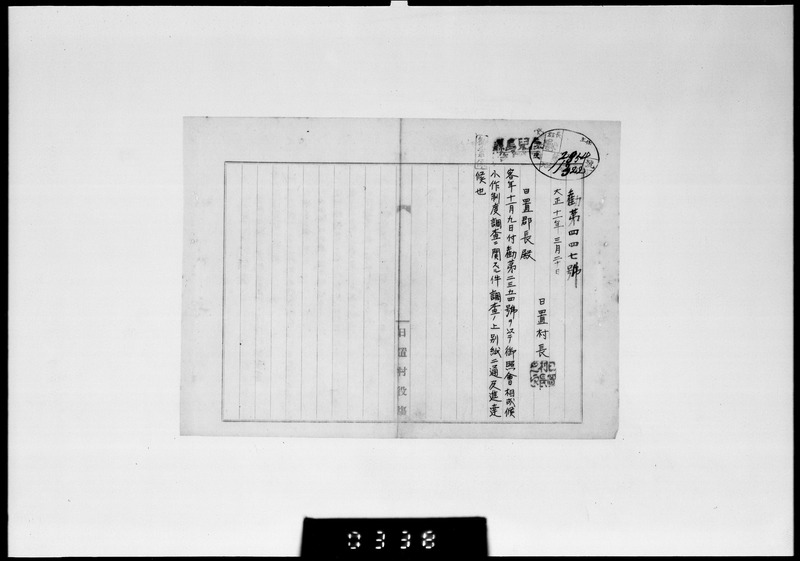 勸第四四七號
大正十一年三月二十日
日置村長
日置郡長殿
客年十一月九日付勸第二三五四號ヲ以テ御照會相成候
小作制度調査ニ関スル件調査ノ上別紙二通及進達
候也
日置村役場
0338